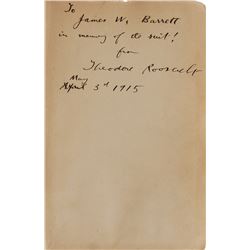 To
James W. Barrett
in memory of the suit!
from
Theodore Roosevelt
May
April 3rd 1915